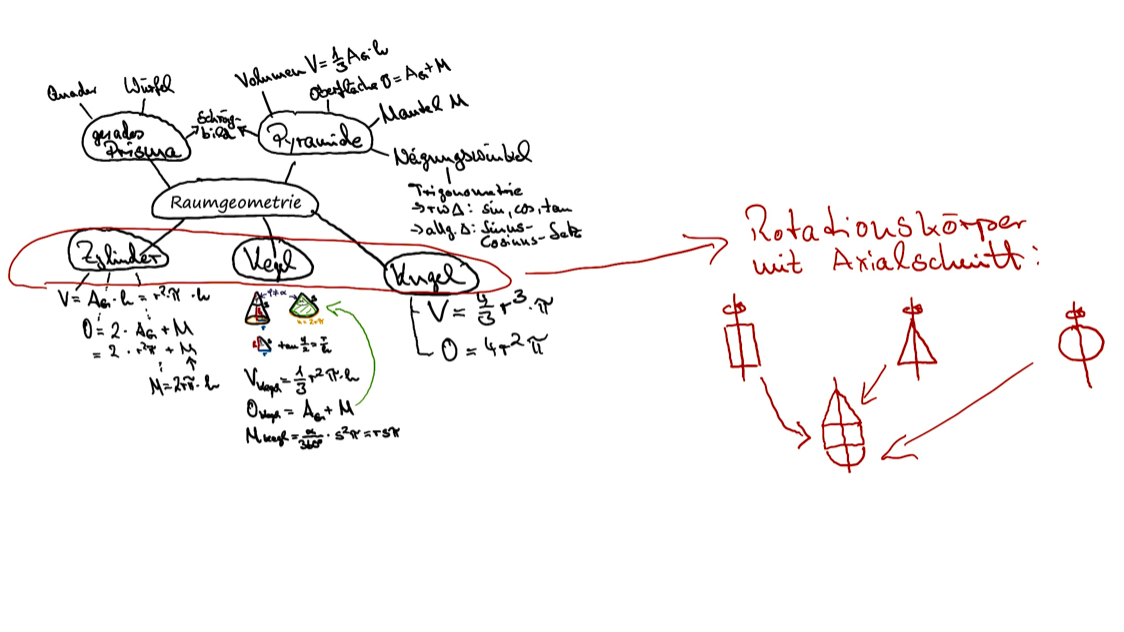 Quader
Würfel
Volumen V = 1/3 A_G · h
Oberfläche O = A_G + M
Mantel M
gerades
Prisma
Schräg-
bild
Pyramide
Neigungswinkel
Trigonometrie
→ rw Δ: sin, cos, tan
→ allg. Δ: Sinus-
Cosinus-Satz
Raumgeometrie
Zylinder
Kegel
Kugel
V = A_G · h = r²·π · h
O = 2 · A_G + M
= 2 · r²π + M
M = 2rπ · h
V_Kegel = 1/3 r² π · h
O_Kegel = A_G + M
M_Kegel = α/360° · s²π = rsπ
V = 4/3 r³ · π
O = 4r²π
Rotationskörper
mit Axialschnitt: